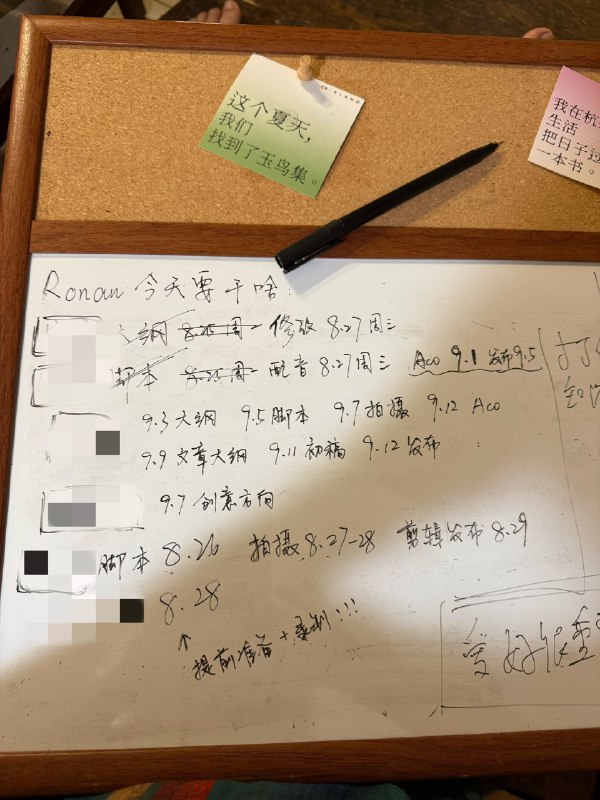 这个夏天,
我们
找到了玉鸟集。
我在杭
生活
把日子过
一本书。
Ronan 今天要干啥
大纲 8.25 周一 修改 8.27 周三
脚本 8.25 周一 配音 8.27 周三 Aco 9.1 发布 9.5
9.3 大纲 9.5 脚本 9.7 拍摄 9.12 Aco
9.9 文章大纲 9.11 初稿 9.12 发布
9.7 创意方向
脚本 8.26 拍摄 8.27-28 剪辑发布 8.29
8.28
↑
提前准备+录制!!!
爱好很重